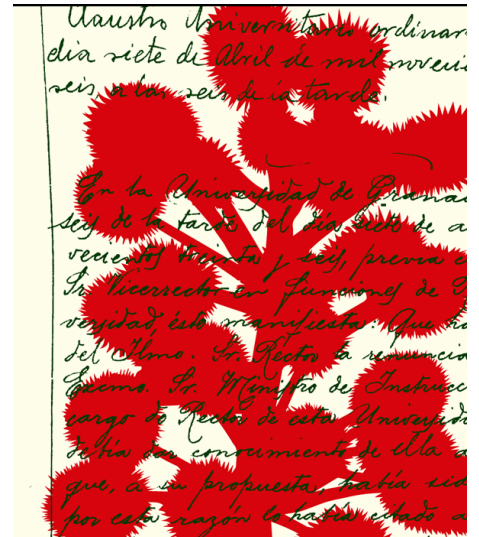 Claustro Universitario ordinar
dia siete de Abril de mil noveci
seis, a las seis de la tarde.
En la Universidad de Grana
seis de la tarde del día siete de a
vecientos treinta y seis, previa c
Sr. Vicerrector en funciones de
versidad, éste manifiesta: Que ha
del Ilmo. Sr. Rector la renuncia
Excmo. Sr. Ministro de Instrucc
cargo de Rector de esta Universid
debía dar conocimiento de ella a
que, a su propuesta, había sid
por esta razón lo había citado a